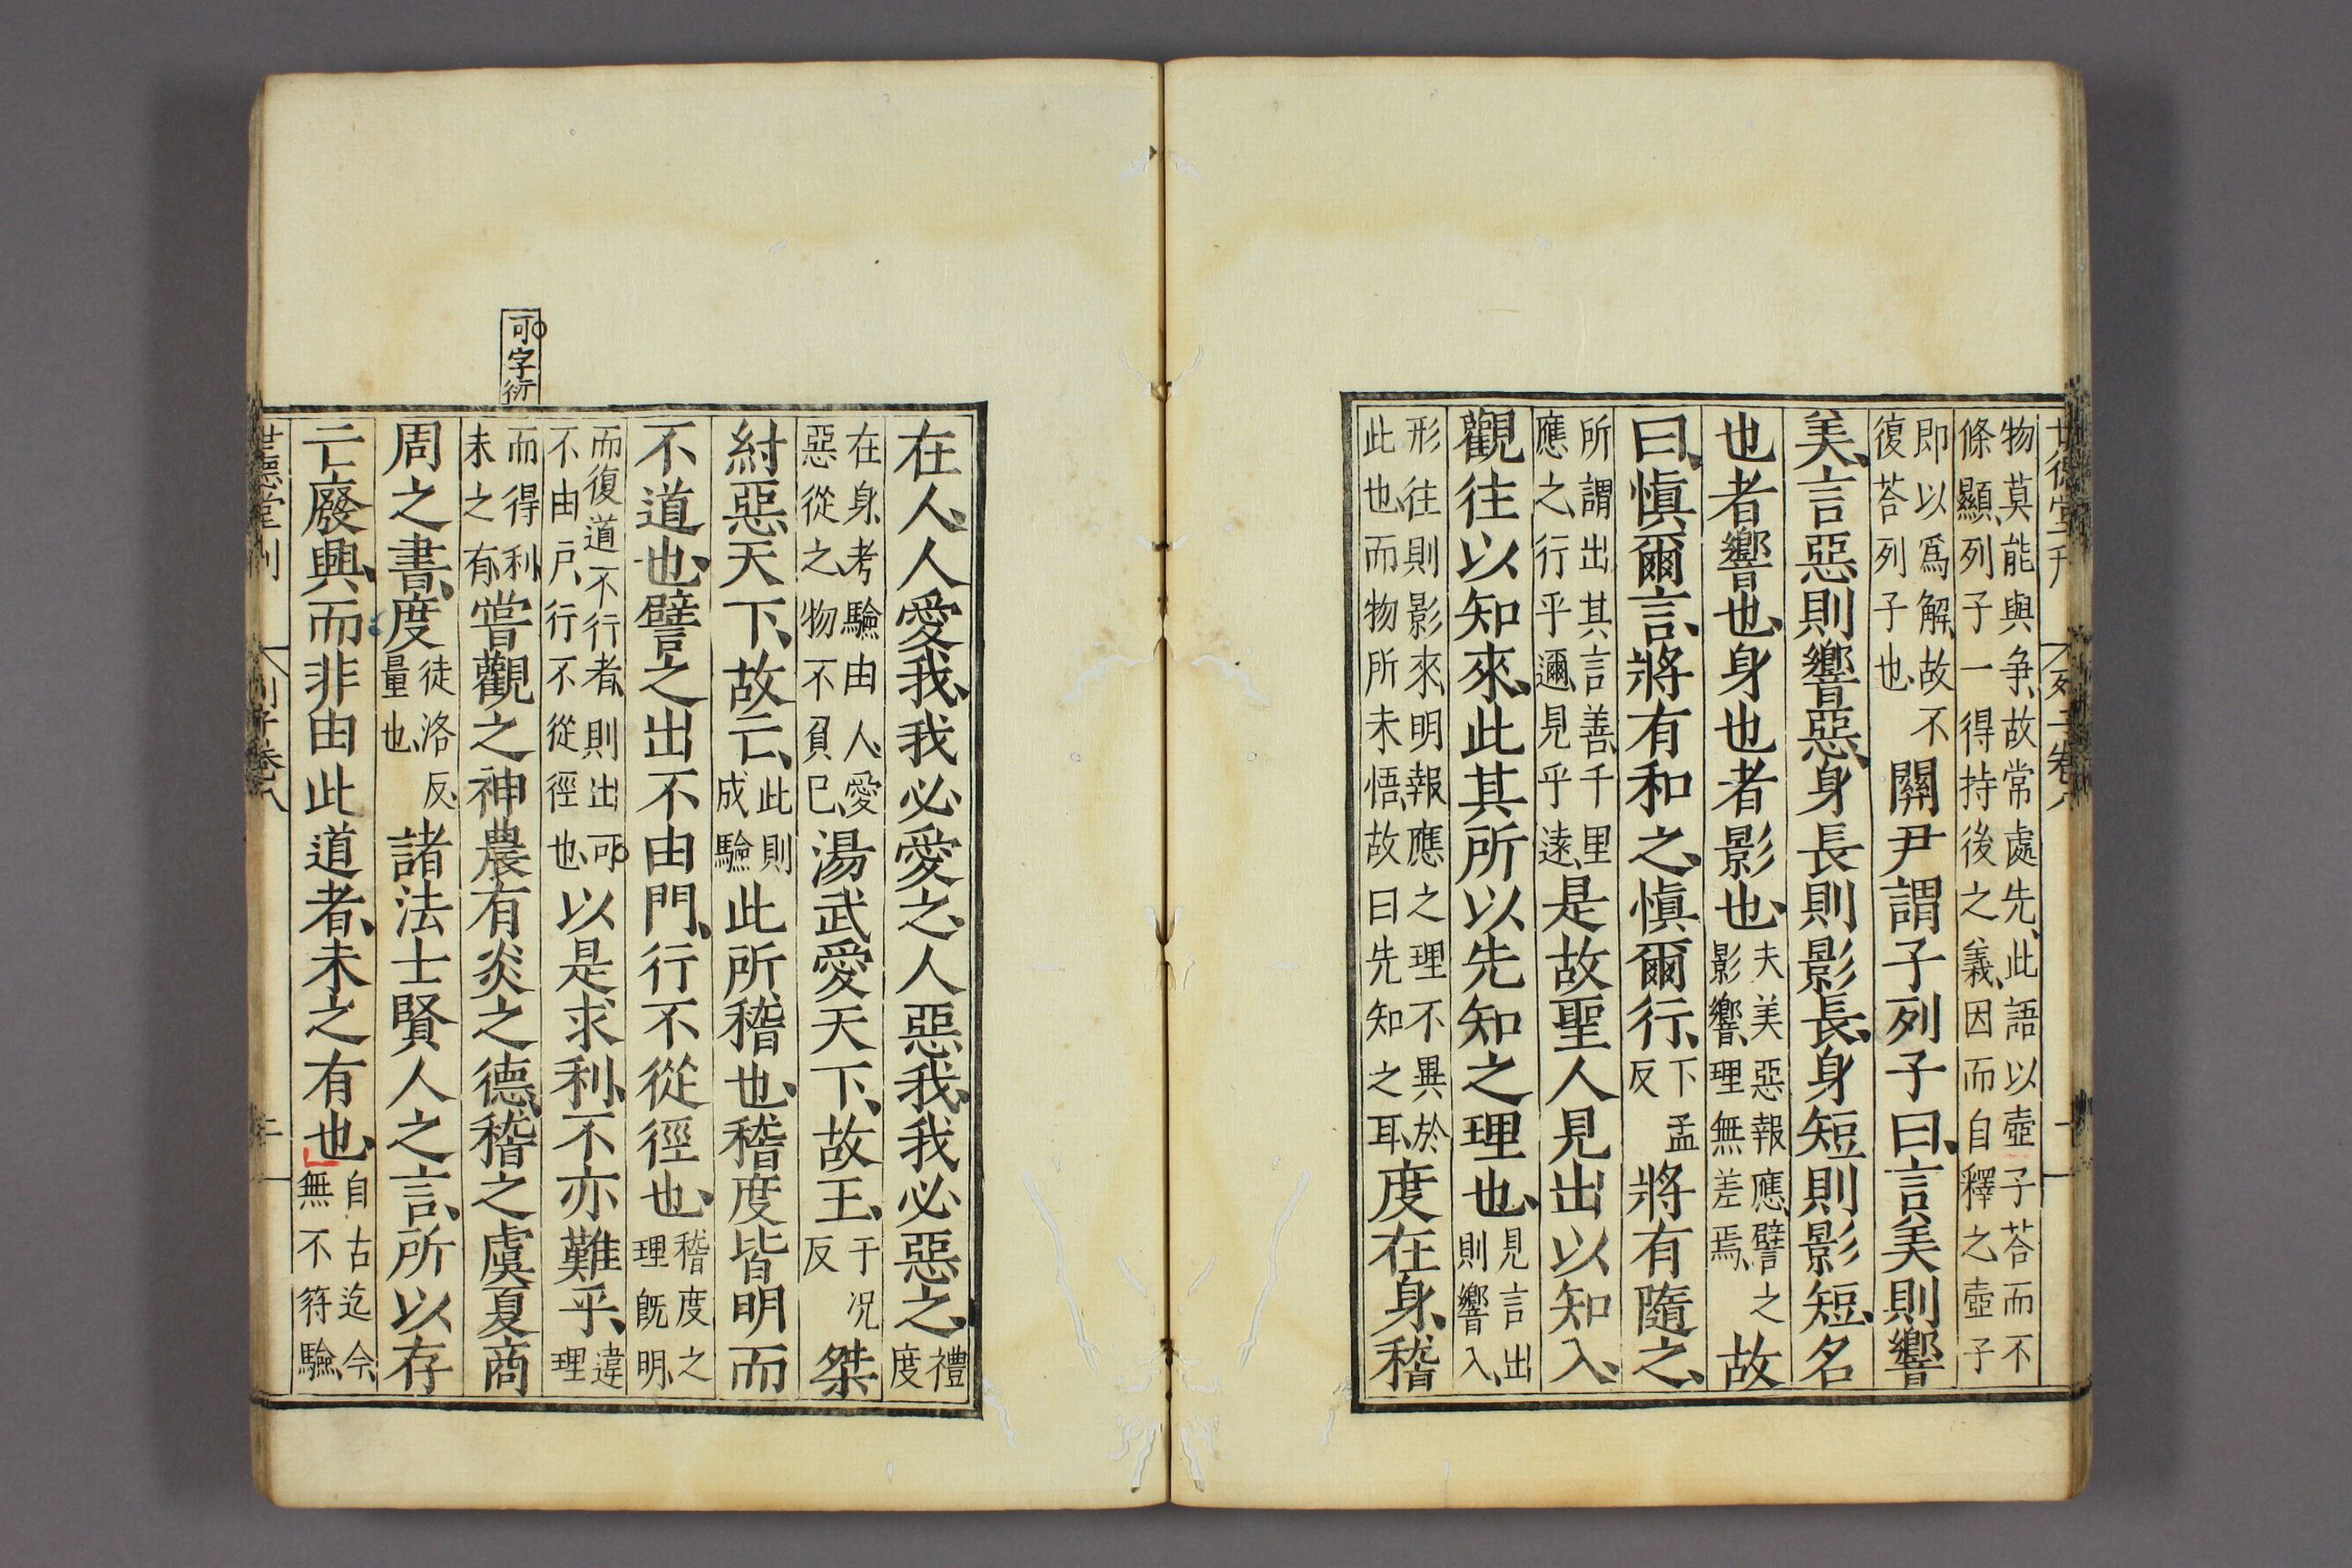 世德堂刊 列子卷八
物莫能與爭、故常處先、此語以壺子荅而不
條顯、列子一得持後之義、因而自釋之、壺子
即以爲解、故不復荅列子也、關尹謂子列子曰、言美則響
美、言惡則響惡、身長則影長、身短則影短、名
也者響也、身也者影也、夫美惡報應、譬之影響、理無差焉、故
曰、慎爾言、將有和之、慎爾行、下孟反將有隨之、
所謂出其言善、千里應之、行乎邇、見乎遠、是故聖人見出以知入、
觀往以知來、此其所以先知之理也、見言出則響入、
形往則影來、明報應之理不異於此也、而物所未悟、故曰先知之耳、度在身、稽
在人、人愛我、我必愛之、人惡我、我必惡之、禮度
在身、考驗由人、愛惡從之、物不負已、湯武愛天下、故王、于况反桀
紂惡天下、故亡、此則成驗此所稽也、稽度皆明而
不道也、譬之出不由門、行不從徑也、稽度之理既明、
而復道不行者、則出可不由戶、行不從徑也、以是求利、不亦難乎、違理
可字衍
而得利、未之有、嘗觀之神農有炎之德、稽之虞夏商
周之書、度徒洛反、量也、諸法士賢人之言、所以存
亡廢興、而非由此道者、未之有也、自古迄今、無不符驗、
世德堂刊 列子卷八